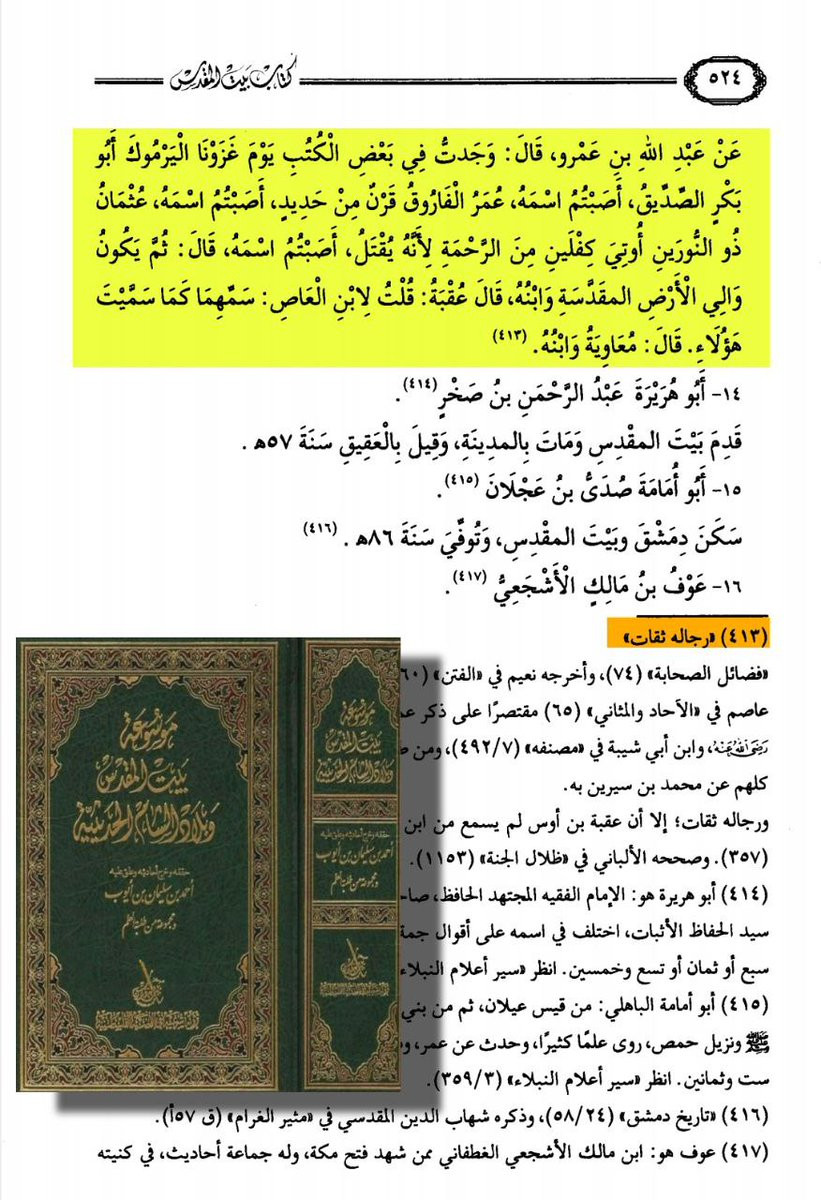 ٥٢٤
كتاب بيت المقدس
عَنْ عَبْدِ اللهِ بنِ عَمْرو، قَالَ: وَجَدتُّ فِي بَعْضِ الْكُتُبِ يَوْمَ غَزَوْنَا الْيَرْمُوكَ أَبُو
بَكْرٍ الصِّدِّيقُ، أَصَبْتُمُ اسْمَهُ، عُمَرُ الْفَارُوقُ قَرْنٌ مِنْ حَدِيدٍ، أَصَبْتُمُ اسْمَهُ، عُثْمَانُ
ذُو النُّورَيْنِ أُوتِيَ كِفْلَيْنِ مِنَ الرَّحْمَةِ لِأَنَّهُ يُقْتَلُ، أَصَبْتُمُ اسْمَهُ، قَالَ: ثُمَّ يَكُونُ
وَالِي الْأَرْضِ المقَدَّسَةِ وَابْنُهُ، قَالَ عُقْبَةُ: قُلْتُ لِابْنِ الْعَاصِ: سَمِّهِمَا كَمَا سَمَّيْتَ
هَؤُلَاءِ. قَالَ: مُعَاوِيَةُ وَابْنُهُ. (٤١٣)
١٤- أَبُو هُرَيْرَةَ عَبْدُ الرَّحْمَنِ بنُ صَخْرٍ(٤١٤).
قَدِمَ بَيْتَ المقْدِسِ وَمَاتَ بِالمدِينَةِ، وَقِيلَ بِالْعَقِيقِ سَنَةَ ٥٧هـ.
١٥- أَبُو أُمَامَةَ صُدَىُّ بنُ عَجْلَانَ (٤١٥).
سَكَنَ دِمَشْقَ وبَيْتَ المقْدِسِ، وَتُوفِّيَ سَنَةَ ٨٦هـ. (٤١٦)
١٦- عَوْفُ بنُ مَالِكٍ الْأَشْجَعِيُّ (٤١٧).
(٤١٣) «رجاله ثقات»
«فضائل الصحابة» (٧٤)، وأخرجه نعيم في «الفتن»
عاصم في «الآحاد والمثاني» (٦٥) مقتصرًا على ذكر
رَضِيَ اللهُ عَنْهُ، وابن أبي شيبة في «مصنفه» (٤٩٢/٧)، ومن
كلهم عن محمد بن سيرين به.
ورجاله ثقات؛ إلا أن عقبة بن أوس لم يسمع من ابن
(٣٥٧). وصححه الألباني في «ظلال الجنة» (١١٥٣).
(٤١٤) أبو هريرة هو: الإمام الفقيه المجتهد الحافظ،
سيد الحفاظ الأثبات، اختلف في اسمه على أقوال
سبع أو ثمان أو تسع وخمسين. انظر «سير أعلام النبلاء
(٤١٥) أبو أمامة الباهلي: من قيس عيلان، ثم من بني
ﷺ ونزيل حمص، روى علمًا كثيرًا، وحدث عن عمر،
ست وثمانين. انظر «سير أعلام النبلاء» (٣٥٩/٣).
(٤١٦) «تاريخ دمشق» (٥٨/٢٤)، وذكره شهاب الدين المقدسي في «مثير الغرام» (ق ٥٧أ).
(٤١٧) عوف هو: ابن مالك الأشجعي الغطفاني ممن شهد فتح مكة، وله جماعة أحاديث، في كنيته
موسوعة
بيت المقدس
وبلاد الشام الحديثية
حققه وخرج أحاديثه وعلق عليه
أحمد بن سليمان بن أيوب
ومجموعة من طلبة العلم
موسوعة
بيت المقدس
وبلاد الشام الحديثية
حققه وخرج أحاديثه وعلق عليه
أحمد بن سليمان بن أيوب
ومجموعة من طلبة العلم